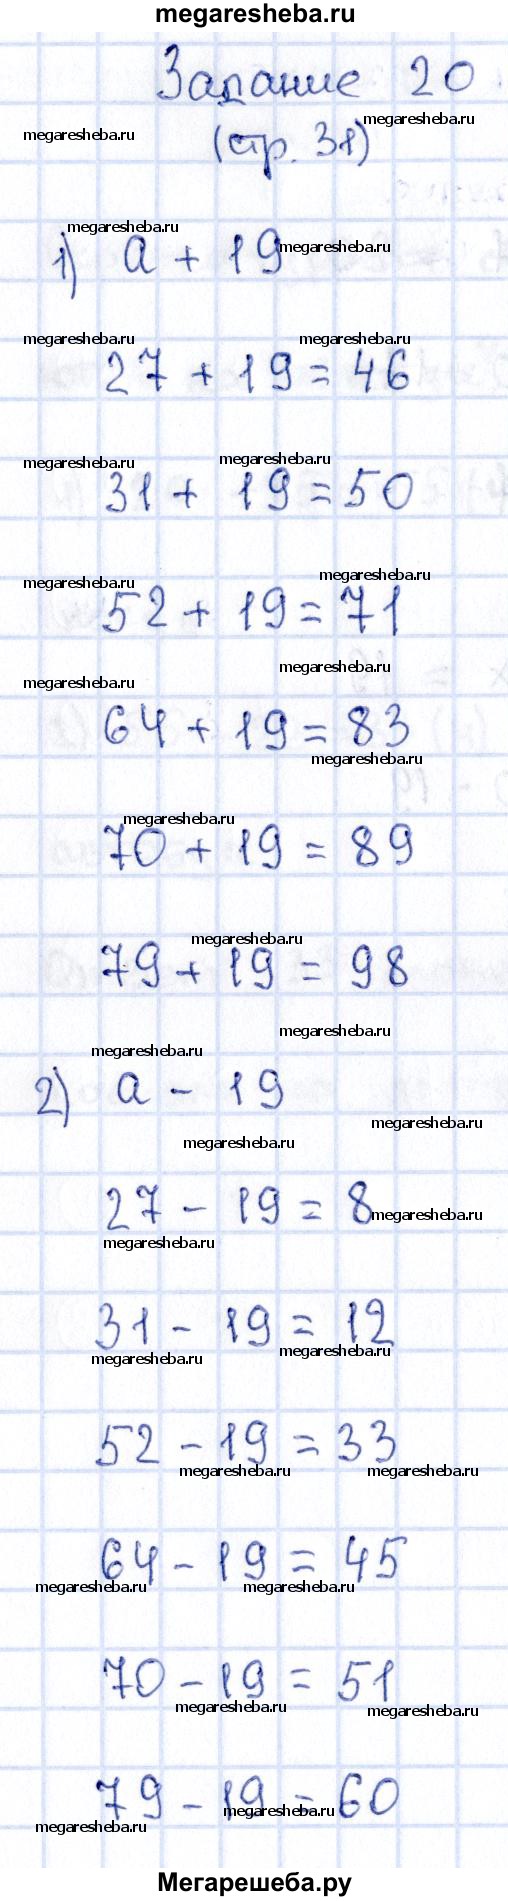 megaresheba.ru
Задание 20
megaresheba.ru
megaresheba.ru
(стр. 31)
megaresheba.ru
1) a + 19
megaresheba.ru
megaresheba.ru
megaresheba.ru
27 + 19 = 46
megaresheba.ru
megaresheba.ru
31 + 19 = 50
megaresheba.ru
megaresheba.ru
52 + 19 = 71
megaresheba.ru
megaresheba.ru
64 + 19 = 83
megaresheba.ru
megaresheba.ru
70 + 19 = 89
megaresheba.ru
79 + 19 = 98
megaresheba.ru
megaresheba.ru
2) a - 19
megaresheba.ru
megaresheba.ru
27 - 19 = 8
megaresheba.ru
megaresheba.ru
31 - 19 = 12
megaresheba.ru
megaresheba.ru
52 - 19 = 33
megaresheba.ru
megaresheba.ru
64 - 19 = 45
megaresheba.ru
megaresheba.ru
70 - 19 = 51
megaresheba.ru
megaresheba.ru
79 - 19 = 60
megaresheba.ru
megaresheba.ru
Мегарешеба.ру